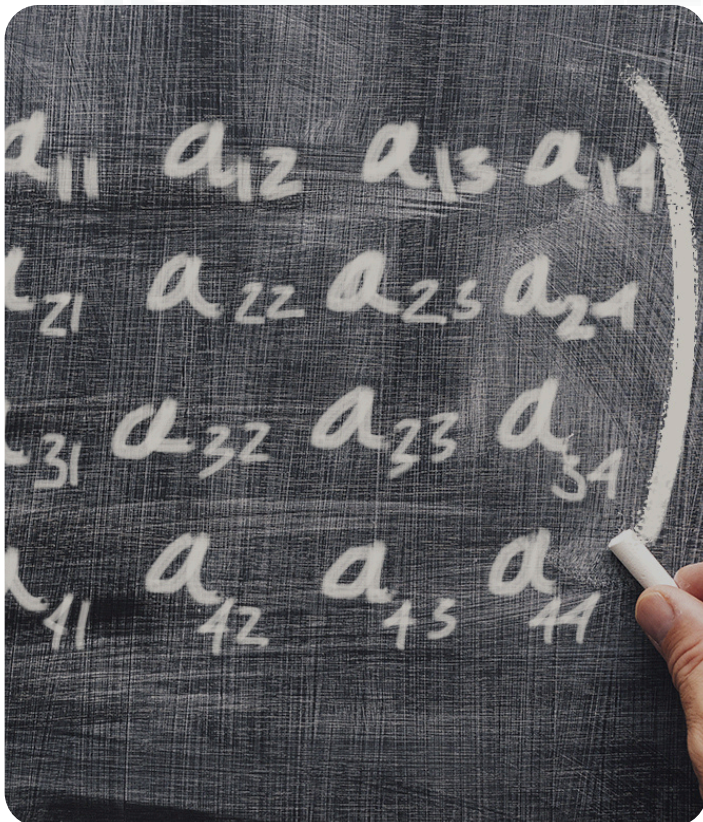 a11 a12 a13 a14
a21 a22 a23 a24
a31 a32 a33 a34
a41 a42 a43 a44